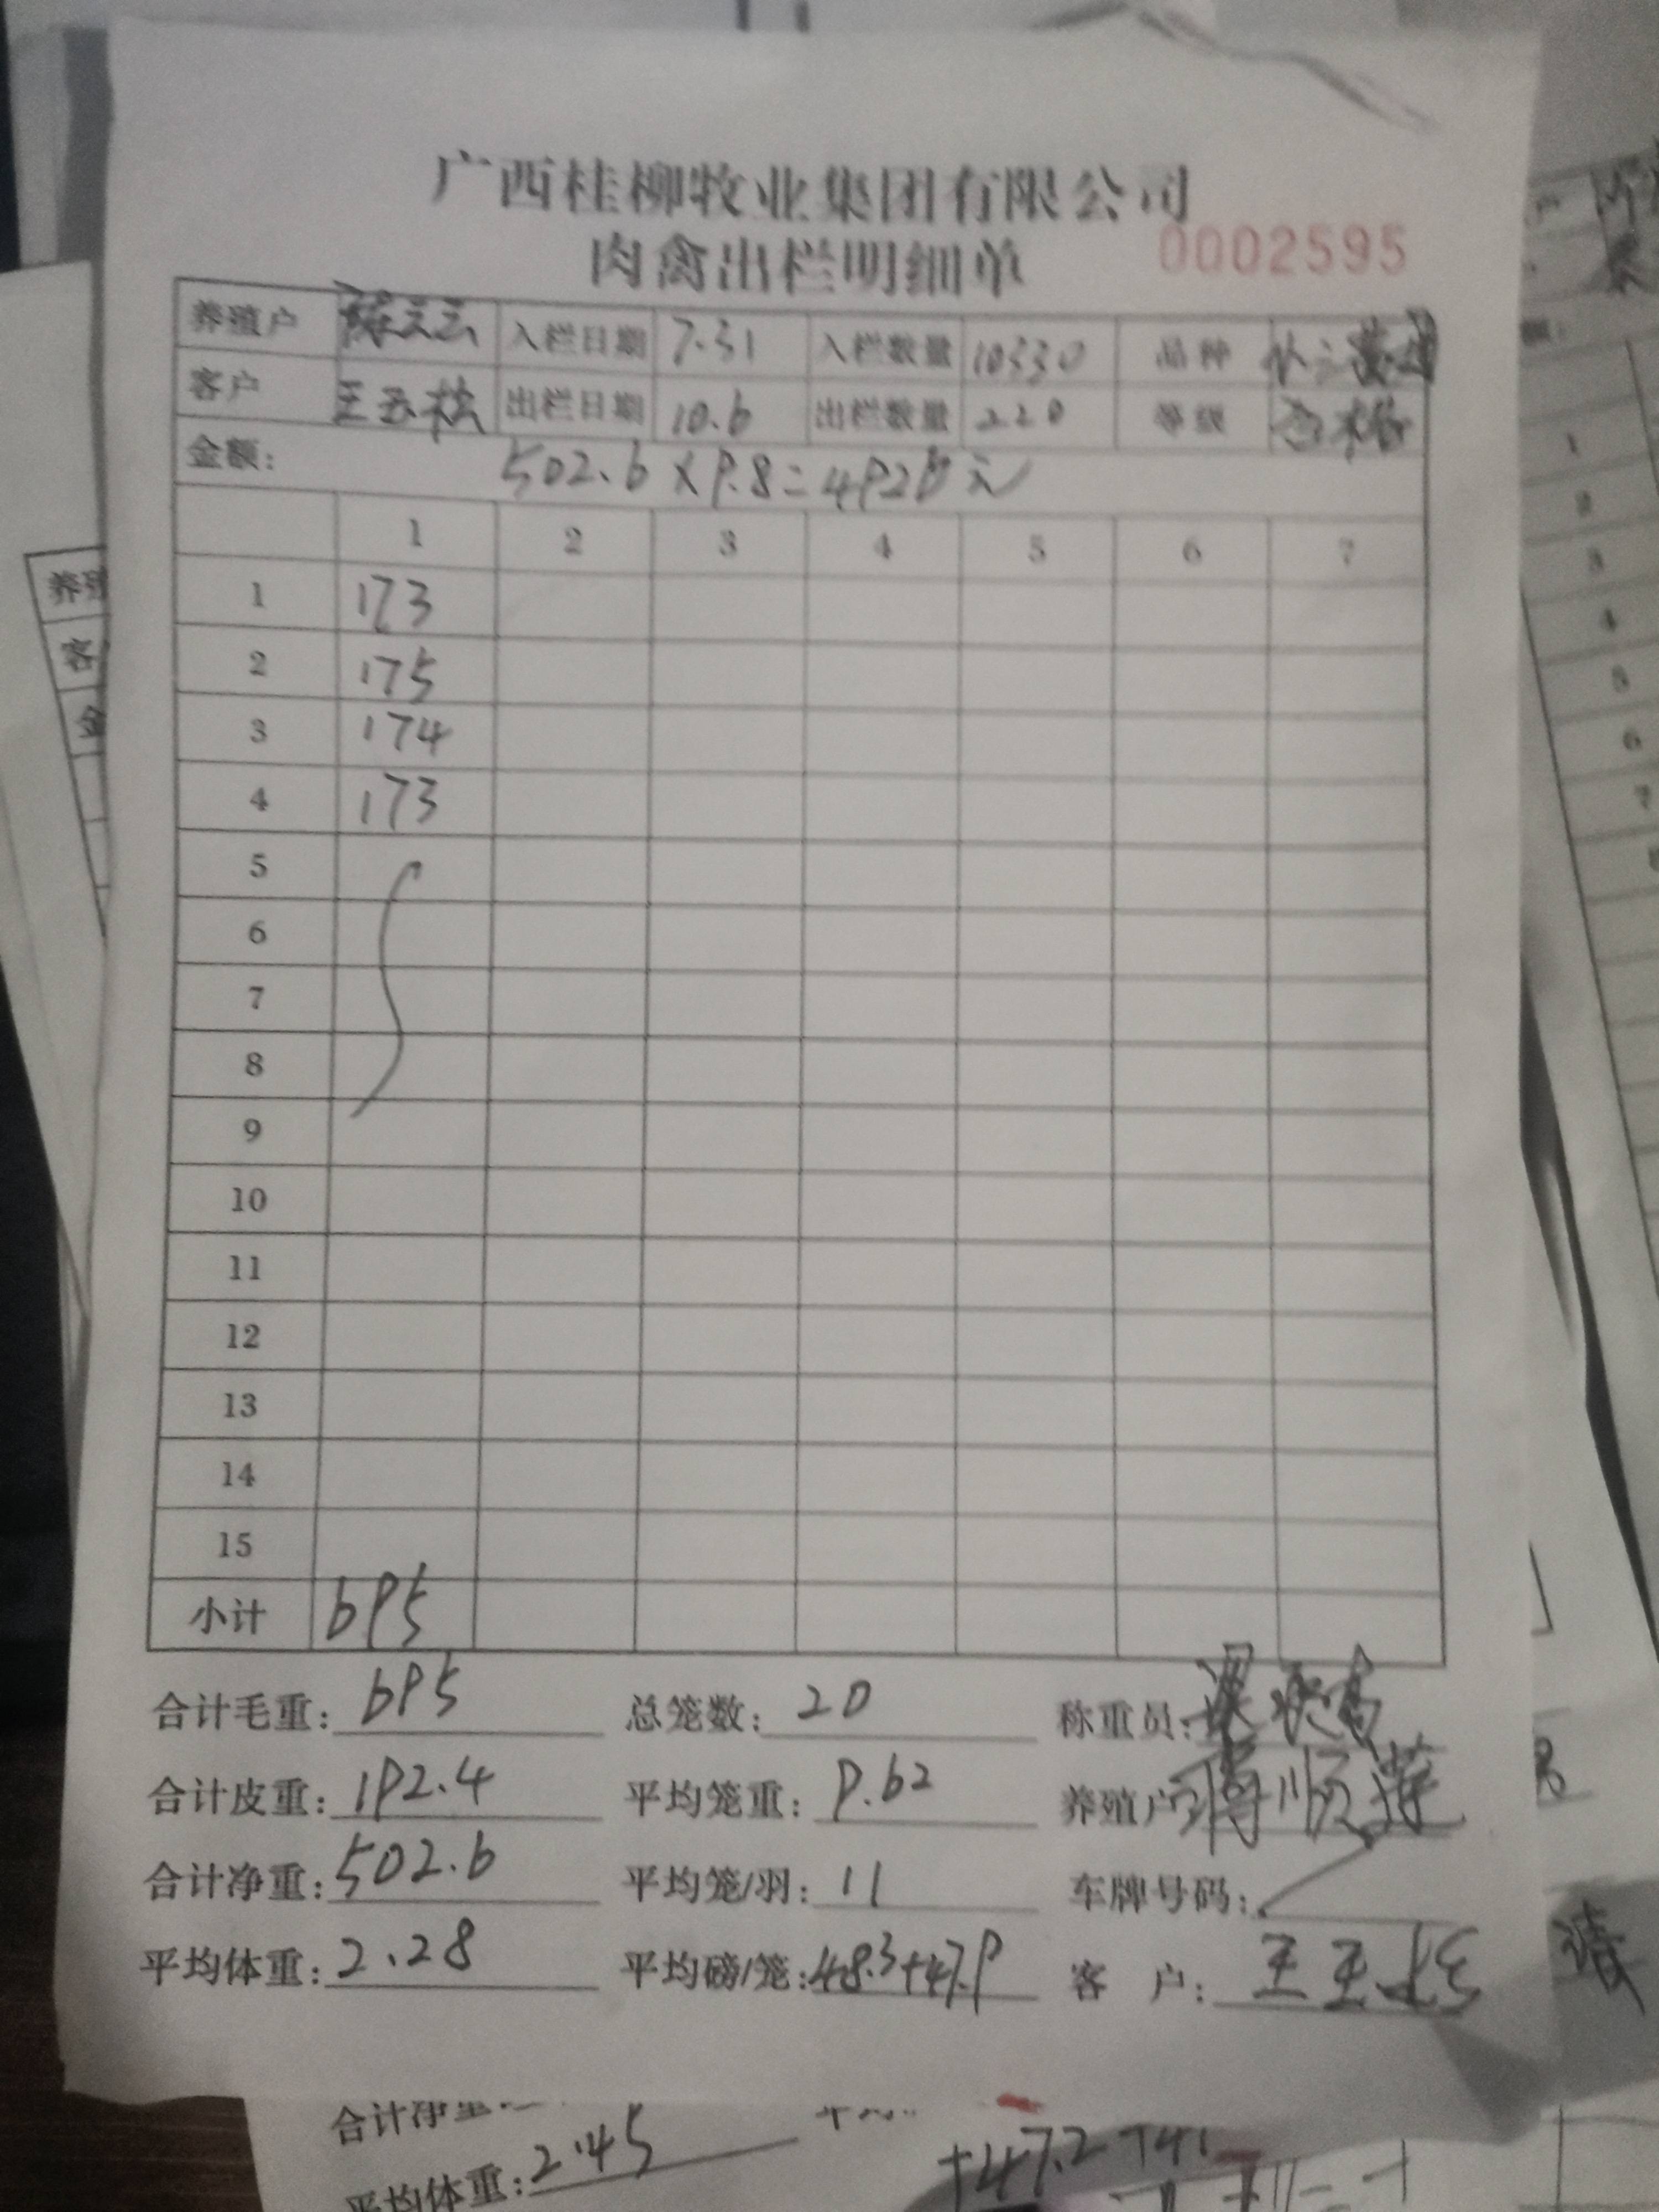 广西桂柳牧业集团有限公司
肉禽出栏明细单 0002595
养殖户 入栏日期 7.31 入栏数量 10330 品种
客户 王玉松 出栏日期 10.6 出栏数量 220 等级 合格
金额: 502.6×9.8=4926元
1 2 3 4 5 6 7
1 173
2 175
3 174
4 173
5
6
7
8
9
10
11
12
13
14
15
小计 695
合计毛重: 695 总笼数: 20 称重员:
合计皮重: 192.4 平均笼重: 9.62 养殖户
合计净重: 502.6 平均笼/羽: 11 车牌号码:
平均体重: 2.28 平均磅/笼: 48.3+47.9 客 户: 王玉松
合计净重
平均体重: 2.45
+47.2+41